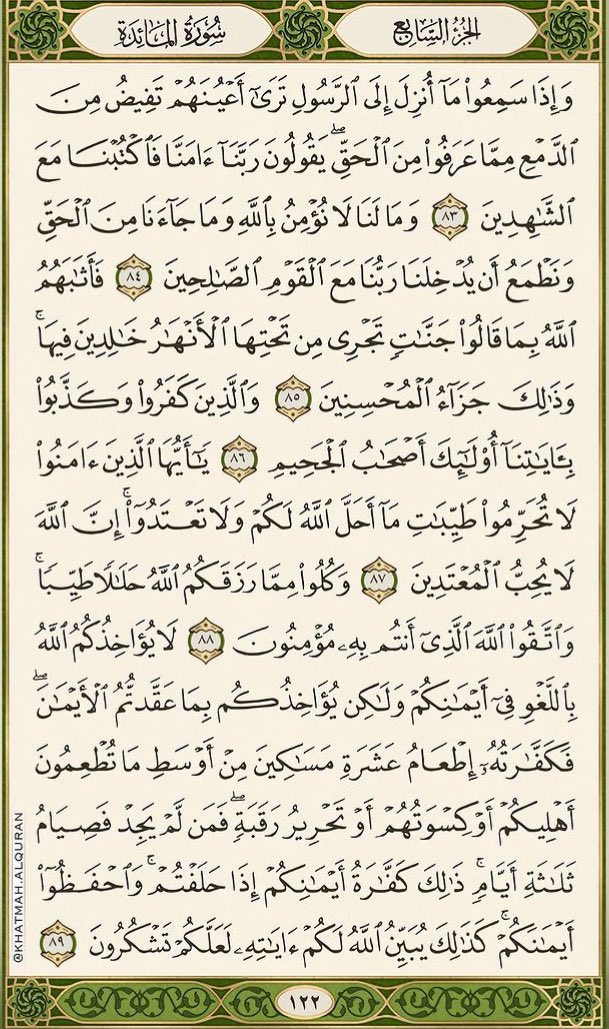 الجزء السابع
سورة المائدة
وَإِذَا سَمِعُوا۟ مَآ أُنزِلَ إِلَى ٱلرَّسُولِ تَرَىٰٓ أَعْيُنَهُمْ تَفِيضُ مِنَ
ٱلدَّمْعِ مِمَّا عَرَفُوا۟ مِنَ ٱلْحَقِّ ۖ يَقُولُونَ رَبَّنَآ ءَامَنَّا فَٱكْتُبْنَا مَعَ
ٱلشَّٰهِدِينَ ٨٣ وَمَا لَنَا لَا نُؤْمِنُ بِٱللَّهِ وَمَا جَآءَنَا مِنَ ٱلْحَقِّ
وَنَطْمَعُ أَن يُدْخِلَنَا رَبُّنَا مَعَ ٱلْقَوْمِ ٱلصَّٰلِحِينَ ٨٤ فَأَثَٰبَهُمُ
ٱللَّهُ بِمَا قَالُوا۟ جَنَّٰتٍ تَجْرِى مِن تَحْتِهَا ٱلْأَنْهَٰرُ خَٰلِدِينَ فِيهَا ۚ
وَذَٰلِكَ جَزَآءُ ٱلْمُحْسِنِينَ ٨٥ وَٱلَّذِينَ كَفَرُوا۟ وَكَذَّبُوا۟
بِـَٔايَٰتِنَآ أُو۟لَٰٓئِكَ أَصْحَٰبُ ٱلْجَحِيمِ ٨٦ يَٰٓأَيُّهَا ٱلَّذِينَ ءَامَنُوا۟
لَا تُحَرِّمُوا۟ طَيِّبَٰتِ مَآ أَحَلَّ ٱللَّهُ لَكُمْ وَلَا تَعْتَدُوٓا۟ ۚ إِنَّ ٱللَّهَ
لَا يُحِبُّ ٱلْمُعْتَدِينَ ٨٧ وَكُلُوا۟ مِمَّا رَزَقَكُمُ ٱللَّهُ حَلَٰلًا طَيِّبًا ۚ
وَٱتَّقُوا۟ ٱللَّهَ ٱلَّذِىٓ أَنتُم بِهِۦ مُؤْمِنُونَ ٨٨ لَا يُؤَاخِذُكُمُ ٱللَّهُ
بِٱللَّغْوِ فِىٓ أَيْمَٰنِكُمْ وَلَٰكِن يُؤَاخِذُكُم بِمَا عَقَّدتُّمُ ٱلْأَيْمَٰنَ ۖ
فَكَفَّٰرَتُهُۥٓ إِطْعَامُ عَشَرَةِ مَسَٰكِينَ مِنْ أَوْسَطِ مَا تُطْعِمُونَ
أَهْلِيكُمْ أَوْ كِسْوَتُهُمْ أَوْ تَحْرِيرُ رَقَبَةٍ ۖ فَمَن لَّمْ يَجِدْ فَصِيَامُ
ثَلَٰثَةِ أَيَّامٍ ۚ ذَٰلِكَ كَفَّٰرَةُ أَيْمَٰنِكُمْ إِذَا حَلَفْتُمْ ۚ وَٱحْفَظُوٓا۟
أَيْمَٰنَكُمْ ۚ كَذَٰلِكَ يُبَيِّنُ ٱللَّهُ لَكُمْ ءَايَٰتِهِۦ لَعَلَّكُمْ تَشْكُرُونَ ٨٩
١٢٢
@KHATMAH.ALQURAN